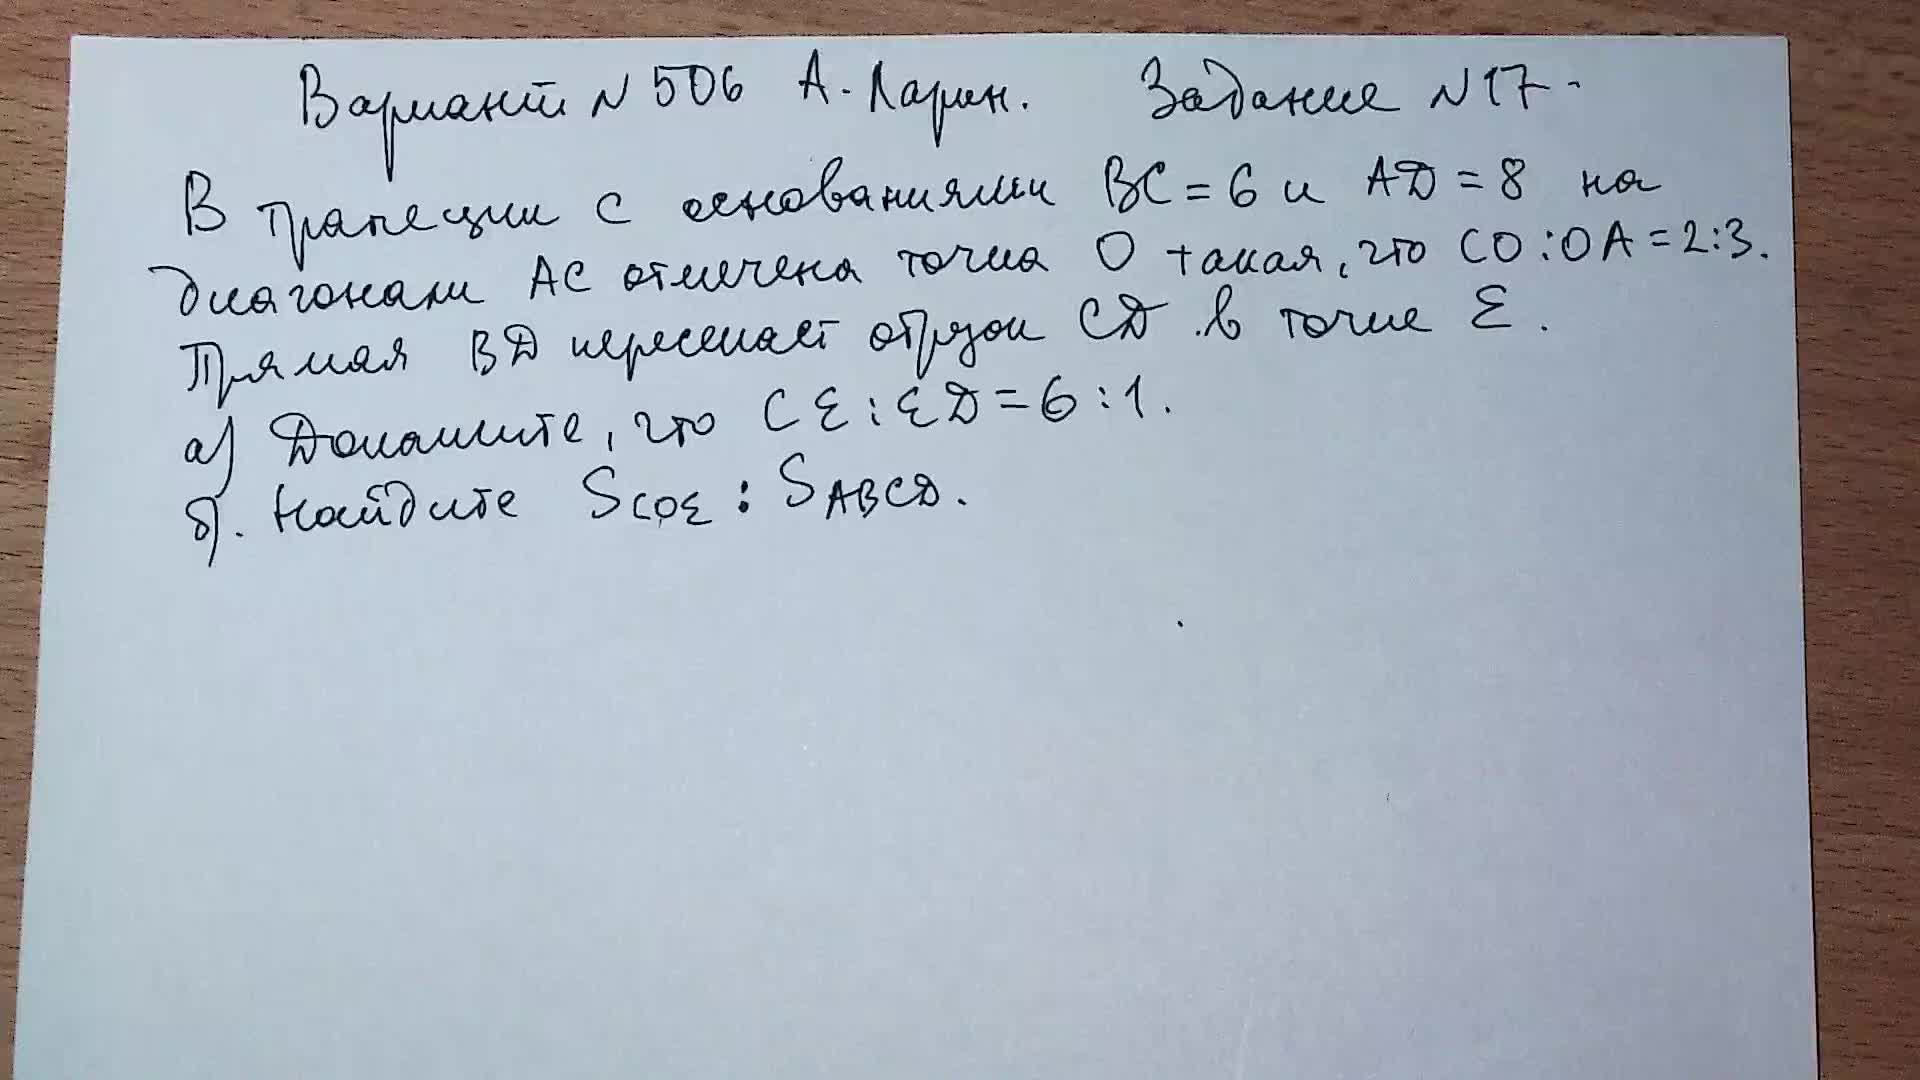 Вариант N 506 А. Ларин. Задание N 17.
В трапеции с основаниями BC = 6 и AD = 8 на
диагонали AC отмечена точка O такая, что CO : OA = 2 : 3.
Прямая BD пересекает отрезок CD в точке E.
а) Докажите, что CE : ED = 6 : 1.
б). Найдите SCOE : SABCD.